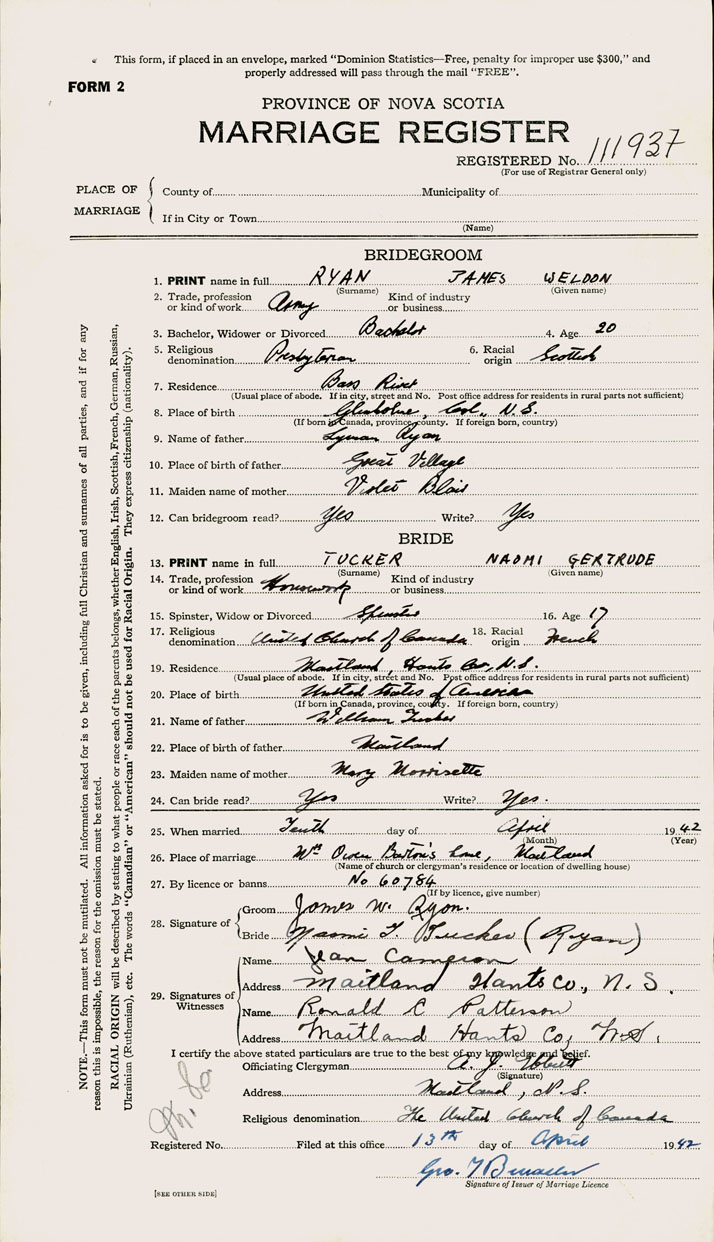 This form, if placed in an envelope, marked "Dominion Statistics—Free, penalty for improper use $300," and
properly addressed will pass through the mail "FREE".
FORM 2
PROVINCE OF NOVA SCOTIA
MARRIAGE REGISTER
REGISTERED No. 111937
(For use of Registrar General only)
PLACE OF MARRIAGE
County of Municipality of
If in City or Town
(Name)
BRIDEGROOM
1. PRINT name in full RYAN JAMES WELDON
(Surname) (Given name)
2. Trade, profession or kind of work Army Kind of industry or business
3. Bachelor, Widower or Divorced Bachelor 4. Age 20
5. Religious denomination Presbyterian 6. Racial origin Scottish
7. Residence Bass River
(Usual place of abode. If in city, street and No. Post office address for residents in rural parts not sufficient)
8. Place of birth Glenholme, Col., N.S.
(If born in Canada, province, county. If foreign born, country)
9. Name of father Lyman Ryan
10. Place of birth of father Great Village
11. Maiden name of mother Violet Blair
12. Can bridegroom read? Yes Write? Yes
BRIDE
13. PRINT name in full TUCKER NAOMI GERTRUDE
(Surname) (Given name)
14. Trade, profession or kind of work Housework Kind of industry or business
15. Spinster, Widow or Divorced Spinster 16. Age 17
17. Religious denomination United Church of Canada 18. Racial origin French
19. Residence Maitland, Hants Co., N.S.
(Usual place of abode. If in city, street and No. Post office address for residents in rural parts not sufficient)
20. Place of birth United States of America
(If born in Canada, province, county. If foreign born, country)
21. Name of father William Tucker
22. Place of birth of father Maitland
23. Maiden name of mother Mary Morrisette
24. Can bride read? Yes Write? Yes.
25. When married Tenth day of April 1942
(Month) (Year)
26. Place of marriage Mrs Owen Barton's home, Maitland
(Name of church or clergyman's residence or location of dwelling house)
27. By licence or banns No 60784
(If by licence, give number)
28. Signature of
Groom James W. Ryan.
Bride Naomi G. Tucker (Ryan)
29. Signatures of Witnesses
Name Jean Cameron
Address Maitland Hants Co., N.S.
Name Ronald C Patterson
Address Maitland Hants Co, N.S.
I certify the above stated particulars are true to the best of my knowledge and belief.
Officiating Clergyman A. J.
(Signature)
Address Maitland, N.S.
Religious denomination The United Church of Canada
Registered No. Filed at this office 13th day of April 1942
Geo.
Signature of Issuer of Marriage Licence
[SEE OTHER SIDE]
NOTE.—This form must not be mutilated. All information asked for is to be given, including full Christian and surnames of all parties, and if for any
reason this is impossible, the reason for the omission must be stated.
RACIAL ORIGIN will be described by stating to what people or race each of the parents belongs, whether English, Irish, Scottish, French, German, Russian,
Ukrainian (Ruthenian), etc. The words "Canadian" or "American" should not be used for Racial Origin. They express citizenship (nationality).